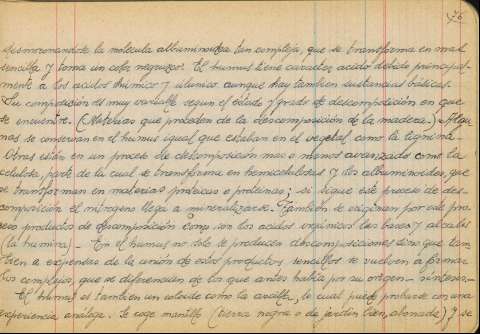 76
desmoronandose la molecula albuminoidea tan compleja, que se transforma en mas
sencilla y toma un color negruzco. El humus tiene caracter acido debido principal-
mente a los acidos humico y ulmico aunque hay tambien sustancias básicas.
Su composicion es muy variable segun el estado y grado de descomposición en que
se encuentre. (Materias que proceden de la descomposición de la madera.) - Algu-
nas se conservan en el humus igual que estaban en el vegetal como la lignina.
Otras estan en un proceso de descomposición mas o menos avanzado como la
celulosa, parte de la cual se transforma en hemicelulosas y los albuminoides, que
se transforman en materias proteicas o proteinas; si sigue este proceso de des-
composición el nitrogeno llega a mineralizarse. Tambien se originan por este pro-
ceso productos de descomposición como son los acidos organicos las bases y alcalis
(la humina) - En el humus no solo se producen descomposiciones sino que tam-
bien a expensas de la union de estos productos sencillos se vuelven a formar
los complejos, que se diferencian de los que antes habia por su origen - sintesis -
El humus es tambien un coloide como la arcilla, lo cual puede probarse con una
experiencia análoga. Se coge mantillo (tierra negra o de jardin bien abonada) y se